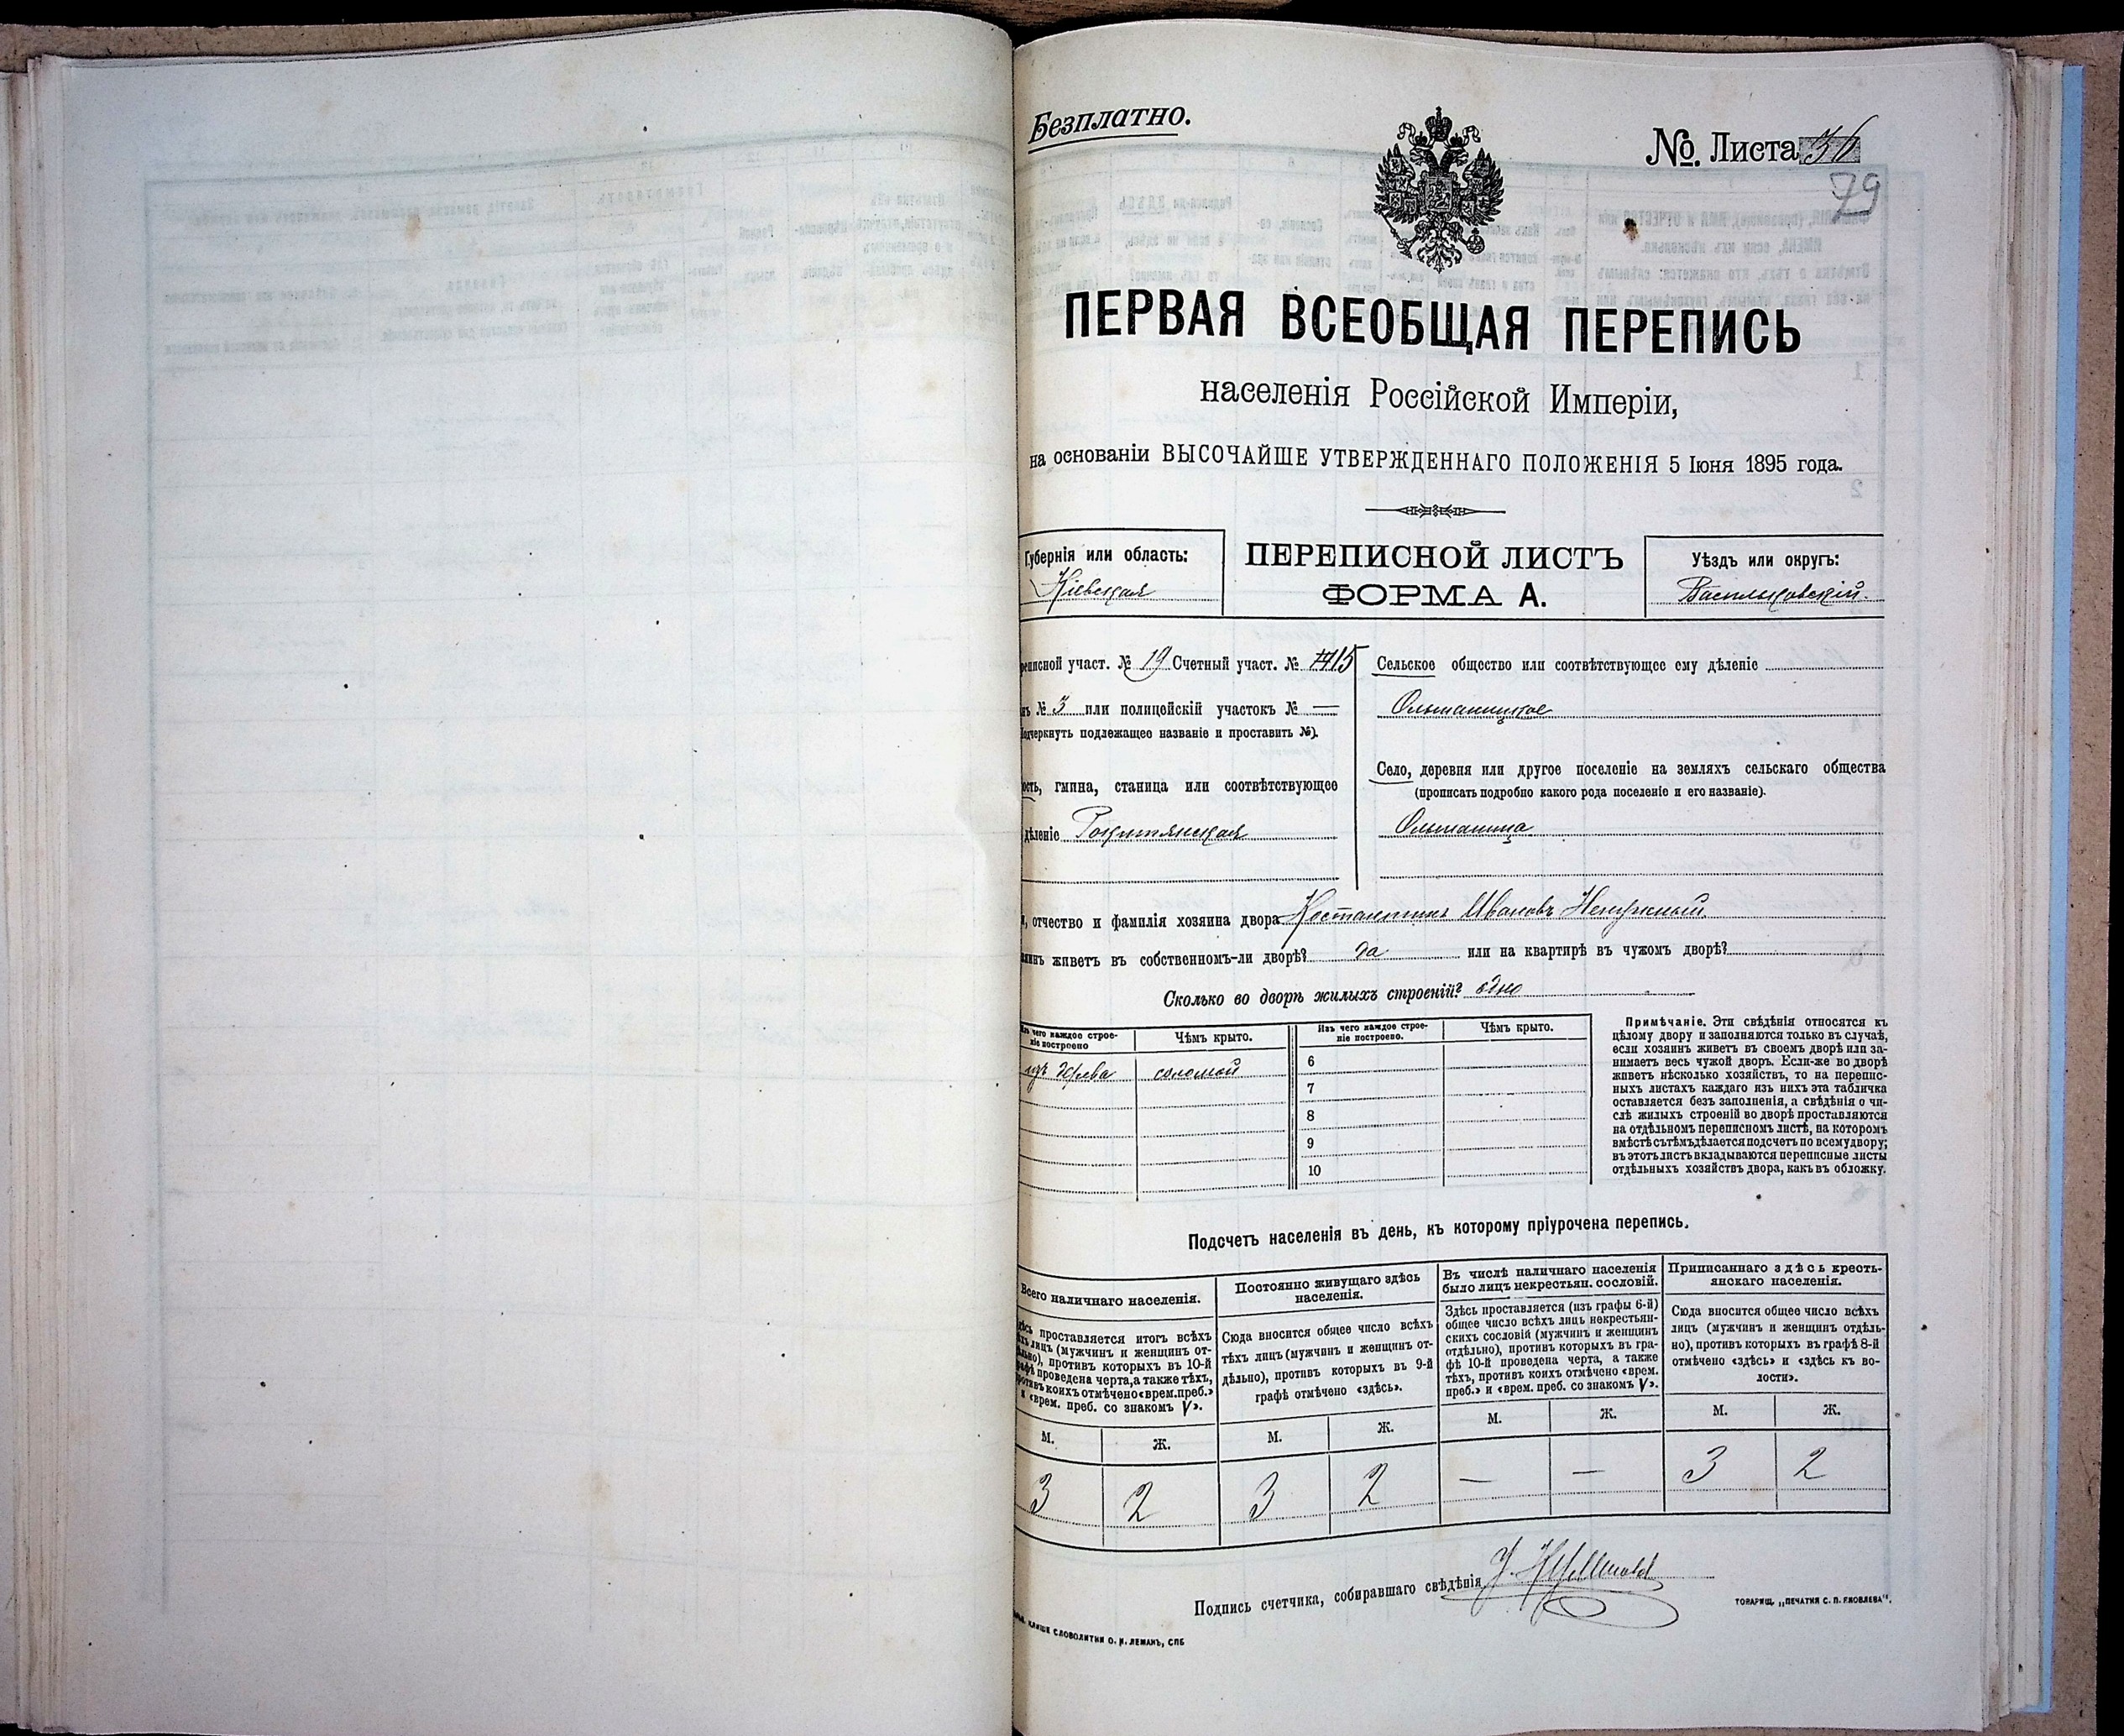 Безплатно.
№. Листа 36
79
ПЕРВАЯ ВСЕОБЩАЯ ПЕРЕПИСЬ
населенія Россійской Имперіи,
на основаніи ВЫСОЧАЙШЕ УТВЕРЖДЕННАГО ПОЛОЖЕНІЯ 5 Іюня 1895 года.
Губернія или область:
Кіевская
ПЕРЕПИСНОЙ ЛИСТЪ
ФОРМА А.
Уѣздъ или округъ:
Васильковскій.
реписной участ. № 19 Счетный участ. № 15
нъ № 3 или полицейскій участокъ № —
одчеркнуть подлежащее названіе и проставить №).
ость, гмина, станица или соотвѣтствующее
дѣленіе Рокитянская
Сельское общество или соотвѣтствующее ему дѣленіе
Ольшаницкое
Село, деревня или другое поселеніе на земляхъ сельскаго общества
(прописать подробно какого рода поселеніе и его названіе).
Ольшаница
, отчество и фамилія хозяина двора Костантинъ Ивановъ
инъ живетъ въ собственномъ-ли дворѣ? да или на квартирѣ въ чужомъ дворѣ?
Сколько во дворѣ жилыхъ строеній? одно
Изъ чего каждое строе-
ніе построено
Чѣмъ крыто.
изъ дерева соломой
Изъ чего каждое строе-
ніе построено.
Чѣмъ крыто.
6
7
8
9
10
Примѣчаніе. Эти свѣдѣнія относятся къ
цѣлому двору и заполняются только въ случаѣ,
если хозяинъ живетъ въ своемъ дворѣ или за-
нимаетъ весь чужой дворъ. Если-же во дворѣ
живетъ нѣсколько хозяйствъ, то на перепис-
ныхъ листахъ каждаго изъ нихъ эта табличка
оставляется безъ заполненія, а свѣдѣнія о чи-
слѣ жилыхъ строеній во дворѣ проставляются
на отдѣльномъ переписномъ листѣ, на которомъ
вмѣстѣ съ тѣмъ дѣлается подсчетъ по всему двору;
въ этотъ листъ вкладываются переписные листы
отдѣльныхъ хозяйствъ двора, какъ въ обложку.
Подсчетъ населенія въ день, къ которому пріурочена перепись.
Всего наличнаго населенія.
Здѣсь проставляется итогъ всѣхъ
тѣхъ лицъ (мужчинъ и женщинъ от-
дѣльно), противъ которыхъ въ 10-й
графѣ проведена черта, а также тѣхъ,
противъ коихъ отмѣчено «врем. преб.»
и «врем. преб. со знакомъ V».
М. Ж.
3 2
Постоянно живущаго здѣсь
населенія.
Сюда вносится общее число всѣхъ
тѣхъ лицъ (мужчинъ и женщинъ от-
дѣльно), противъ которыхъ въ 9-й
графѣ отмѣчено «здѣсь».
М. Ж.
3 2
Въ числѣ наличнаго населенія
было лицъ некрестьян. сословій.
Здѣсь проставляется (изъ графы 6-й)
общее число всѣхъ лицъ некрестьян-
скихъ сословій (мужчинъ и женщинъ
отдѣльно), противъ которыхъ въ гра-
фѣ 10-й проведена черта, а также
тѣхъ, противъ коихъ отмѣчено «врем.
преб.» и «врем. преб. со знакомъ V».
М. Ж.
— —
Приписаннаго здѣсь кресть-
янскаго населенія.
Сюда вносится общее число всѣхъ
лицъ (мужчинъ и женщинъ отдѣль-
но), противъ которыхъ въ графѣ 8-й
отмѣчено «здѣсь» и «здѣсь къ во-
лости».
М. Ж.
3 2
Подпись счетчика, собиравшаго свѣдѣнія
КЛИШЕ СЛОВОЛИТНИ О. И. ЛЕМАНЪ, СПБ
ТОВАРИЩ. „ПЕЧАТНЯ С. П. ЯКОВЛЕВА".